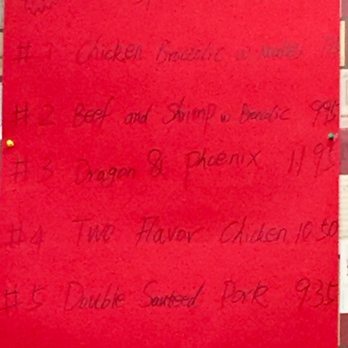 # 1 Chicken Broccolic w Noodles
# 2 Beef and Shrimp w Broccolic 995
# 3 Dragon & Phoenix 11 95
# 4 Two Flavor Chicken 10 50
# 5 Double Sauteed Pork 935